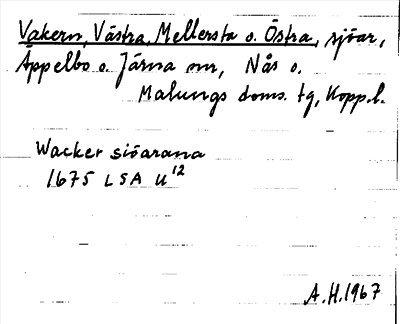 Vakern, Västra, Mellersta o. Östra, sjöar,
Äppelbo o. Järna snr, Nås o.
Malungs doms. tg, Kopp.l.
Wacker siöarana
1675 LSA U12
A.H.1967